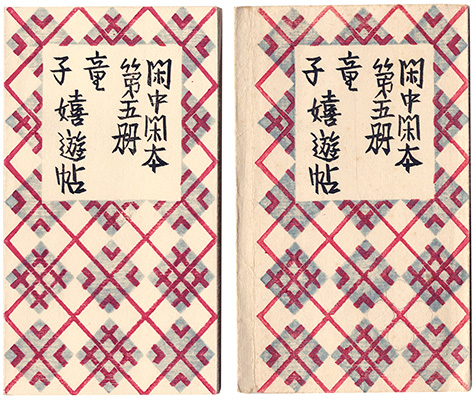 閑中閑本
第五冊
童子嬉遊帖
閑中閑本
第五冊
童子嬉遊帖